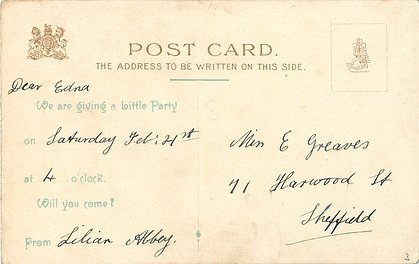 POST CARD.
THE ADDRESS TO BE WRITTEN ON THIS SIDE.
Dear Edna
We are giving a Little Party
on Saturday Feb: 21st
at 4 o'clock.
Will you come?
From Lilian Abbey.
Miss E Greaves
71 Harwood St
Sheffield